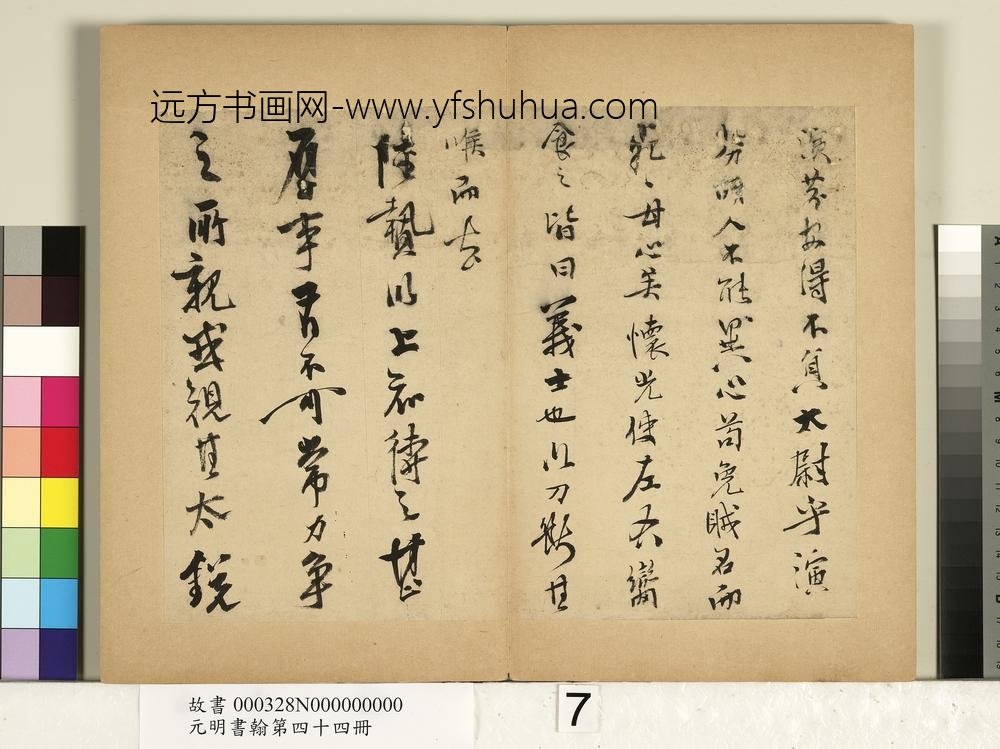 远方书画网-www.yfshuhua.com
演芬安得不負太尉乎演
芬胡人不能異心苟免賊名而
死々甘心矣懷光使左右臠
食之皆曰義士也以刀斷其
喉而去
陸贄以上知待之甚
厚事有不可常力争
之所親或規其太銳
故書 000328N000000000
元明書翰第四十四冊
7